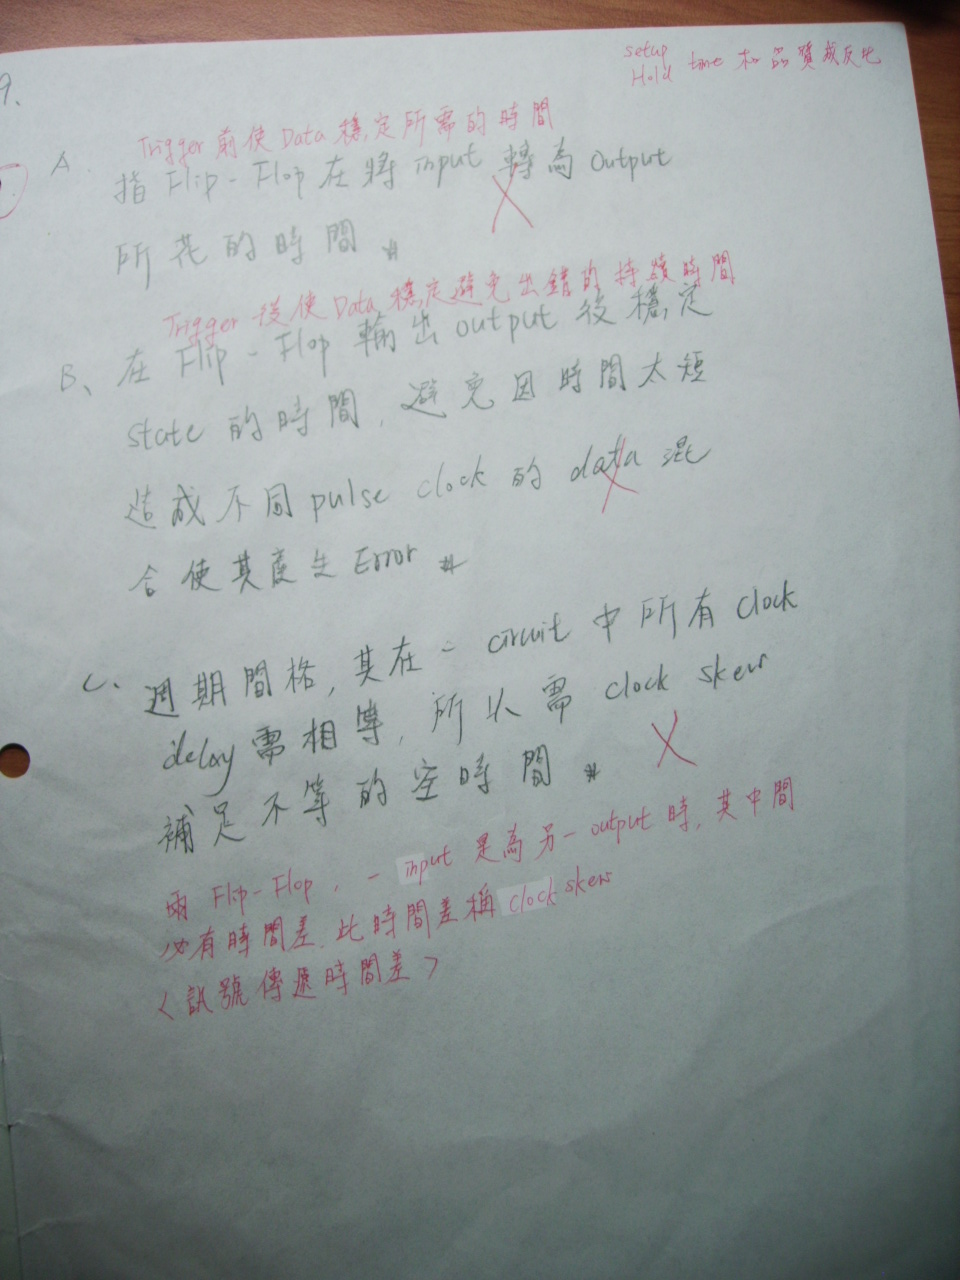 setup
Hold time 和品質成反比
9、
Trigger 前使 Data 穩定所需的時間
A. 指 Flip-Flop 在將 input 轉為 output
所花的時間 #
Trigger 後使 Data 穩定避免出錯的持續時間
B、在 Flip-Flop 輸出 output 後穩定
state 的時間, 避免因時間太短
造成不同 pulse clock 的 data 混
合使其產生 Error #
C、週期間格, 其在一 circuit 中所有 clock
delay 需相等, 所以需 clock skew
補足不等的空時間 #
兩 Flip-Flop, 一 input 是為另一 output 時, 其中間
必有時間差, 此時間差稱 clock skew
<訊號傳遞時間差>